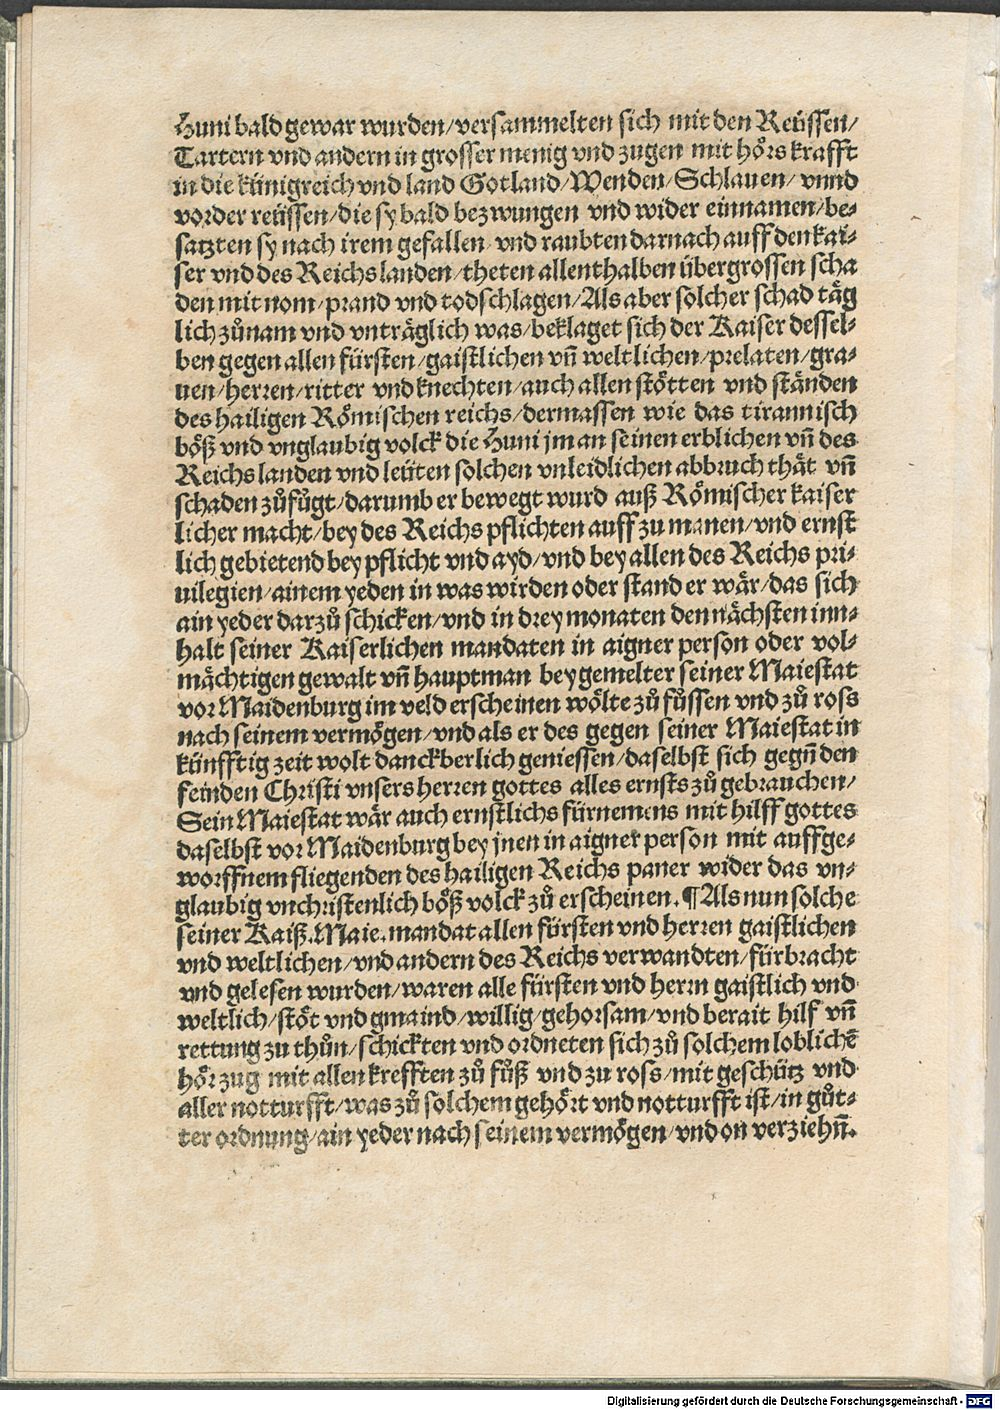 Huni bald gewar wurden/versammelten sich mit den Reüssen/
Tartern vnd andern in grosser menig vnd zugen mit hörs krafft
in die künigreich vnd land Gotland/Wenden/Schlauen/vnnd
vorder reüssen/die sy bald bezwungen vnd wider einnamen/be-
satzten sy nach irem gefallen vnd raubten darnach auff den kai-
ser vnd des Reichs landen/theten allenthalben übergrossen scha
den mit nom/prand vnd todschlagen/Als aber solcher schad täg
lich zůnam vnd vnträglich was/beklaget sich der Kaiser dessel-
ben gegen allen fürsten/gaistlichen vñ weltlichen/prelaten/gra-
uen/herren/ritter vnd knechten/auch allen stötten vnd ständen
des hailigen Römischen reichs/dermassen wie das tirannisch
böß vnd vnglaubig volck die Huni jm an seinen erblichen vñ des
Reichs landen vnd leüten solchen vnleidlichen abbruch thät vñ
schaden zůfůgt/darumb er bewegt wurd auß Römischer kaiser
licher macht/bey des Reichs pflichten auff zu manen/vnd ernst
lich gebietend bey pflicht vnd ayd/vnd bey allen des Reichs pri-
uilegien/ainem yeden in was wirden oder stand er wär/das sich
ain yeder darzů schicken/vnd in drey monaten den nächsten inn-
halt seiner Kaiserlichen mandaten in aigner person oder vol-
mächtigen gewalt vñ hauptman bey gemelter seiner Maiestat
vor Maidenburg im veld erscheinen wölte zů fůssen vnd zů ross
nach seinem vermögen/vnd als er des gegen seiner Maiestat in
künfftig zeit wolt danckberlich geniessen/daselbst sich gegñ den
feinden Christi vnsers herren gottes alles ernsts zů gebrauchen/
Sein Maiestat wär auch ernstlichs fürnemens mit hilff gottes
daselbst vor Maidenburg bey jnen in aigner person mit auffge-
worffnem fliegenden des hailigen Reichs paner wider das vn-
glaubig vnchristenlich böß volck zů erscheinen.¶Als nun solche
seiner Kaiß.Maie.mandat allen fürsten vnd herren gaistlichen
vnd weltlichen/vnd andern des Reichs verwandten/fürbracht
vnd gelesen wurden/waren alle fürsten vnd herrn gaistlich vnd
weltlich/stöt vnd gmaind/willig/gehorsam/vnd berait hilf vñ
rettung zu thůn/schickten vnd ordneten sich zů solchem loblichē
hörzug mit allen krefften zů fůß vnd zu ross/mit geschütz vnd
aller notturfft/was zů solchem gehört vnd notturfft ist/in gůt-
ter ordnung/ain yeder nach seinem vermögen/vnd on verziehñ.
Digitalisierung gefördert durch die Deutsche Forschungsgemeinschaft - DFG